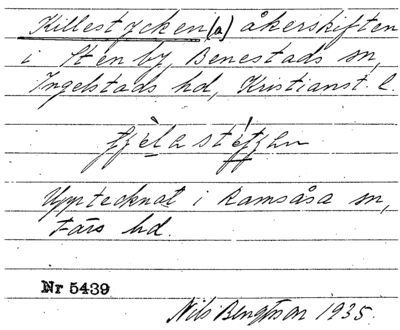 Killestycken (a) åkerskiften
i Stenby, Benestads sn,
Ingelstads hd, Kristianst. l.
Upptecknat i Ramsåsa sn,
Färs hd.
Nr 5439
Nils Bengtsson 1935.